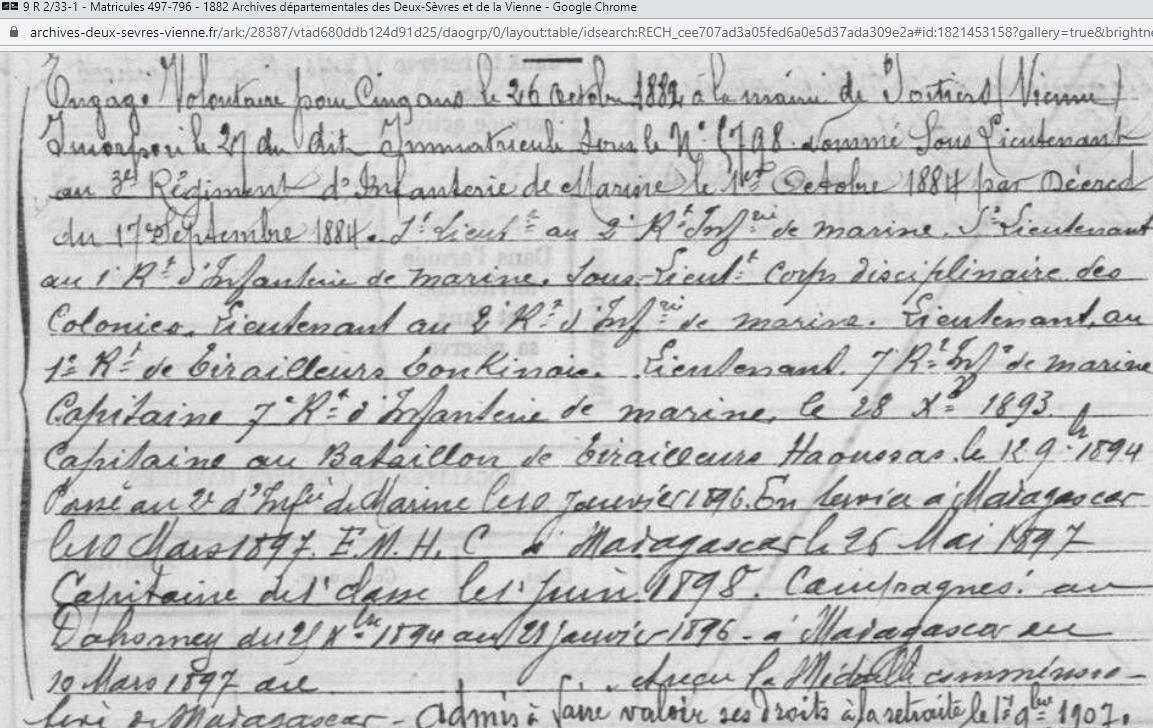 9 R 2/33-1 - Matricules 497-796 - 1882 Archives départementales des Deux-Sèvres et de la Vienne - Google Chrome
archives-deux-sevres-vienne.fr/ark:/28387/vtad680ddb124d91d25/daogrp/0/layout:table/idsearch:RECH_cee707ad3a05fed6a0e5d37ada309e2a#id:1821453158?gallery=true&brightne
Engagé Volontaire pour Cinq ans le 26 Octobre 1882 à la mairie de Poitiers (Vienne)
Incorporé le 27 du dit Immatriculé sous le N° 1798. Nommé Sous Lieutenant
au 3e Régiment d'Infanterie de Marine le 1er Octobre 1884 par Décret
du 17 Septembre 1884. Lieut t au 2e Rt Inf rie de marine. Ss Lieutenant
au 1er Rt d'Infanterie de marine. Sous-Lieut t Corps disciplinaire des
Colonies. Lieutenant au 2e Rt d'Inf rie de marine. Lieutenant au
1er Rt de tirailleurs tonkinois. Lieutenant. 7e Rt Inf ie de marine
Capitaine 7e Rt d'Infanterie de marine, le 28 Xbre 1893
Capitaine au Bataillon de tirailleurs Haoussas le 12 9bre 1894
Passé au 2e d'Inf rie de Marine le 10 Janvier 1896. En service à Madagascar
le 10 Mars 1897. E.M.H.C à Madagascar le 26 Mai 1897
Capitaine de 1e classe le 1er Juin 1898. Campagnes: au
Dahomey du 25 Xbre 1894 au 28 janvier 1896 - à Madagascar du
10 Mars 1897 au A reçu la Médaille commémo-
de Madagascar - Admis à faire valoir ses droits à la retraite le 1er 9bre 1907.